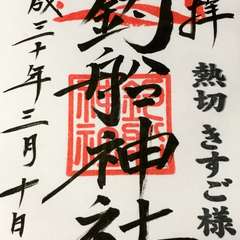 拝
熱切 きすご様
釣船神社
成三十年三月十日